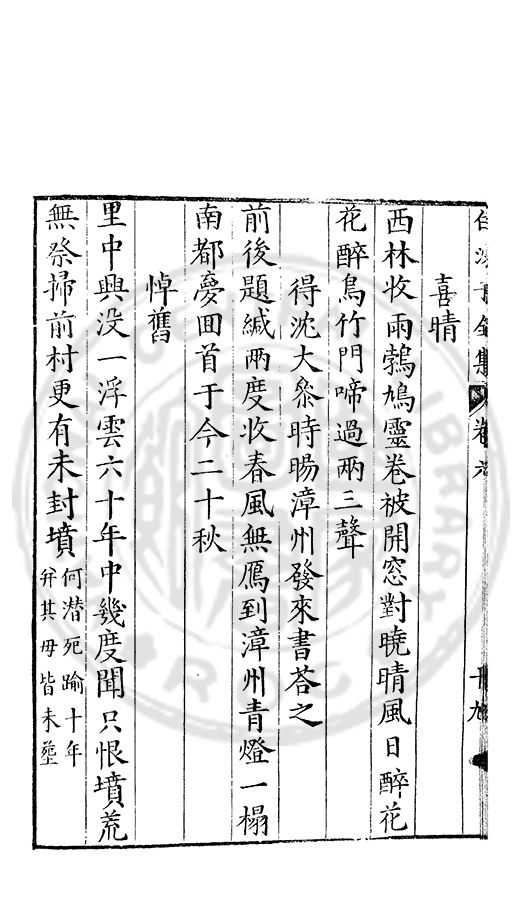 白沙子全集 卷六 卅九
喜晴
西林收雨鵓鳩靈卷被開窓對曉晴風日醉花
花醉鳥竹門啼過兩三聲
得沈大叅時暘漳州發來書荅之
前後題緘兩度收春風無鴈到漳州青燈一榻
南都夢囬首于今二十秋
悼舊
里中興没一浮雲六十年中幾度聞只恨墳荒
無祭掃前村更有未封墳何潜死踰十年
弁其毋皆未塟